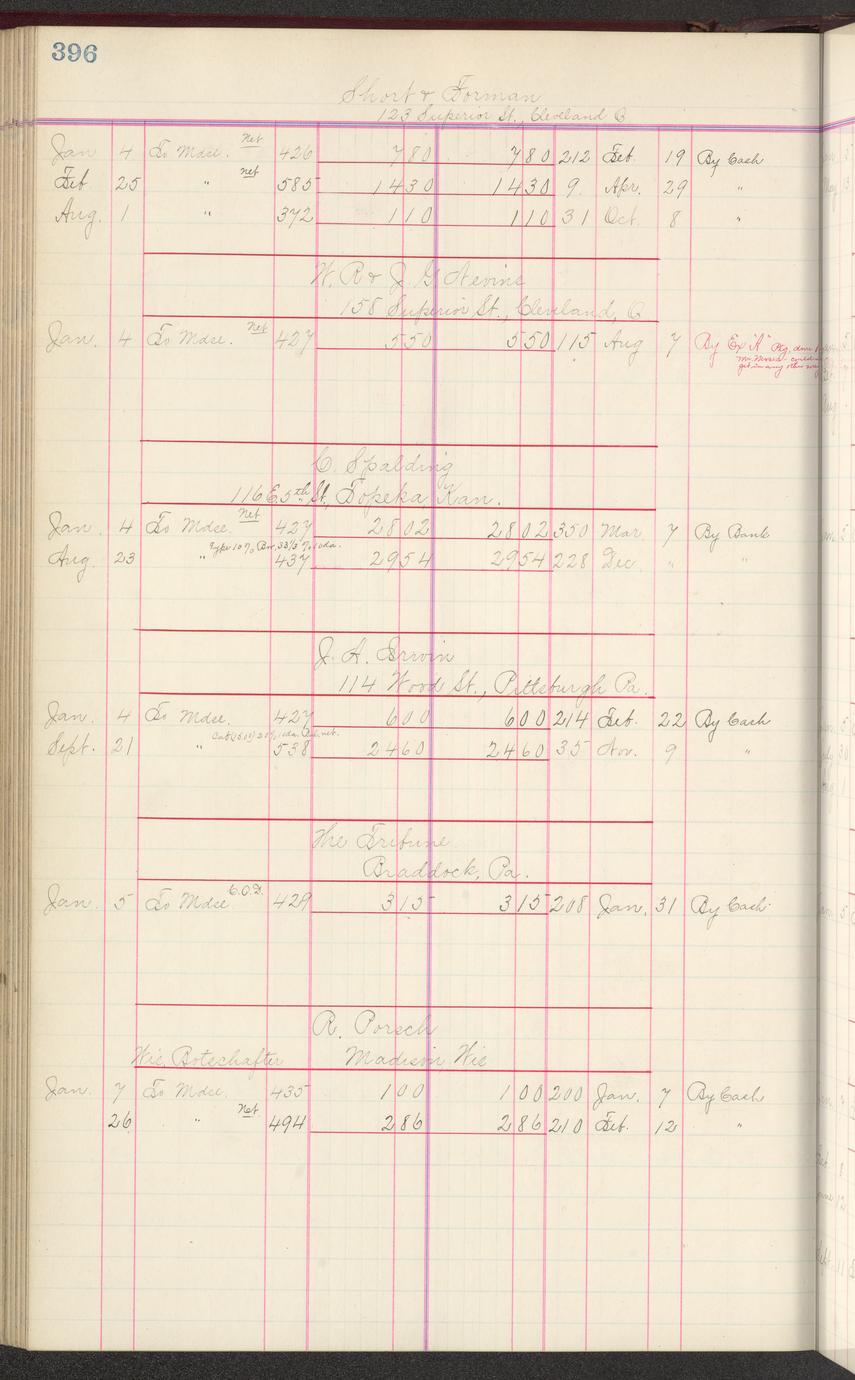 396
Short & Forman
123 Superior St., Cleveland O
Jan 4 To Mdse. Net 426 780 780 212 Feb. 19 By Cash
Feb 25 " net 585 1430 1430 9 Apr. 29 "
Aug. 1 " 372 110 110 31 Oct. 8 "
W. R & J. G. Nevins
158 Superior St., Cleveland, O
Jan. 4 To Mdse. Net 427 550 550 115 Aug 7 By Ex "A" Pkg. done
Mr. Moses - couldn
get in any other way
C. Spalding
116 E. 5th St, Topeka, Kan.
Jan. 4 To Mdse. Net 427 2802 2802 350 Mar 7 By Bank
Type 10% Bor. 33⅓ % 10da.
Aug. 23 " 437 2954 2954 228 Dec " "
J. A. Irwin
114 Wood St., Pittsburgh Pa.
Jan. 4 To Mdse. 427 600 600 214 Feb. 22 By Cash
20% 10da. net.
Sept. 21 " 538 2460 2460 35 Nov. 9 "
The Tribune
Braddock, Pa.
Jan. 5 To Mdse C.O.D. 429 315 315 208 Jan. 31 By Cash
R. Porsch
Wis. Botschafter Madison Wis
Jan. 7 To Mdse. 435 100 100 200 Jan. 7 By Cash
26 " Net 494 286 286 210 Feb. 12 "